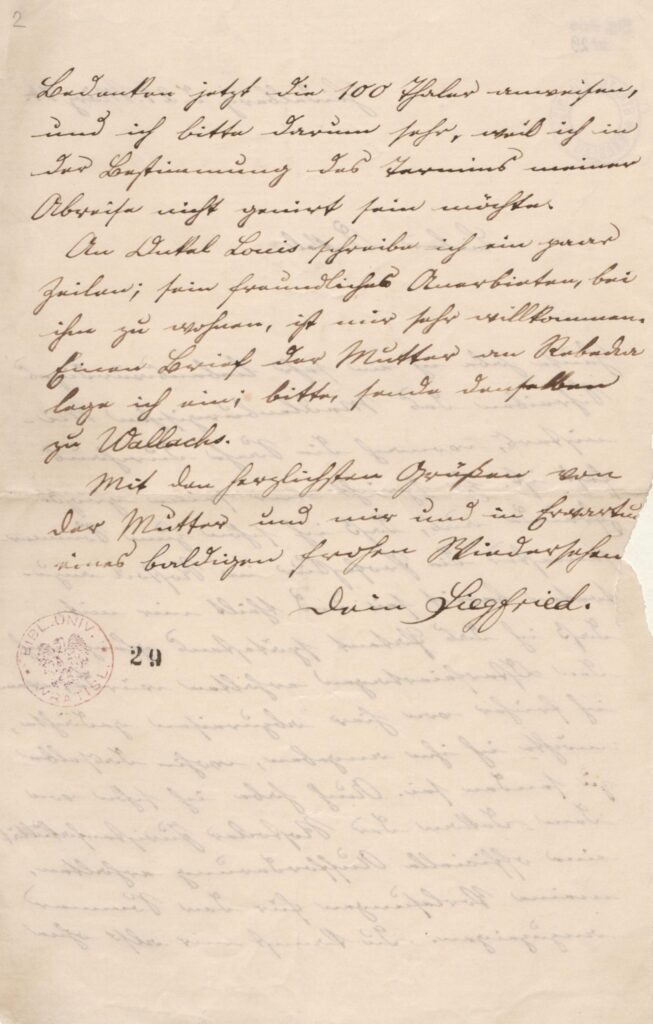 2
Bedenken jetzt die 100 Thaler anweisen,
und ich bitte darum sehr, weil ich in
der Bestimmung des Termins meiner
Abreise nicht genirt sein möchte.
An Onkel Louis schreibe ich ein paar
Zeilen; sein freundliches Anerbieten, bei
ihm zu wohnen, ist mir sehr willkommen.
Einen Brief der Mutter an Rebecka
lege ich ein; bitte, sende denselben
zu Wallachs.
Mit den herzlichsten Grüßen von
der Mutter und mir und in Erwartu
eines baldigen frohen Wiedersehen
Dein Siegfried.
BIBL. UNIV. WRATISL.
29